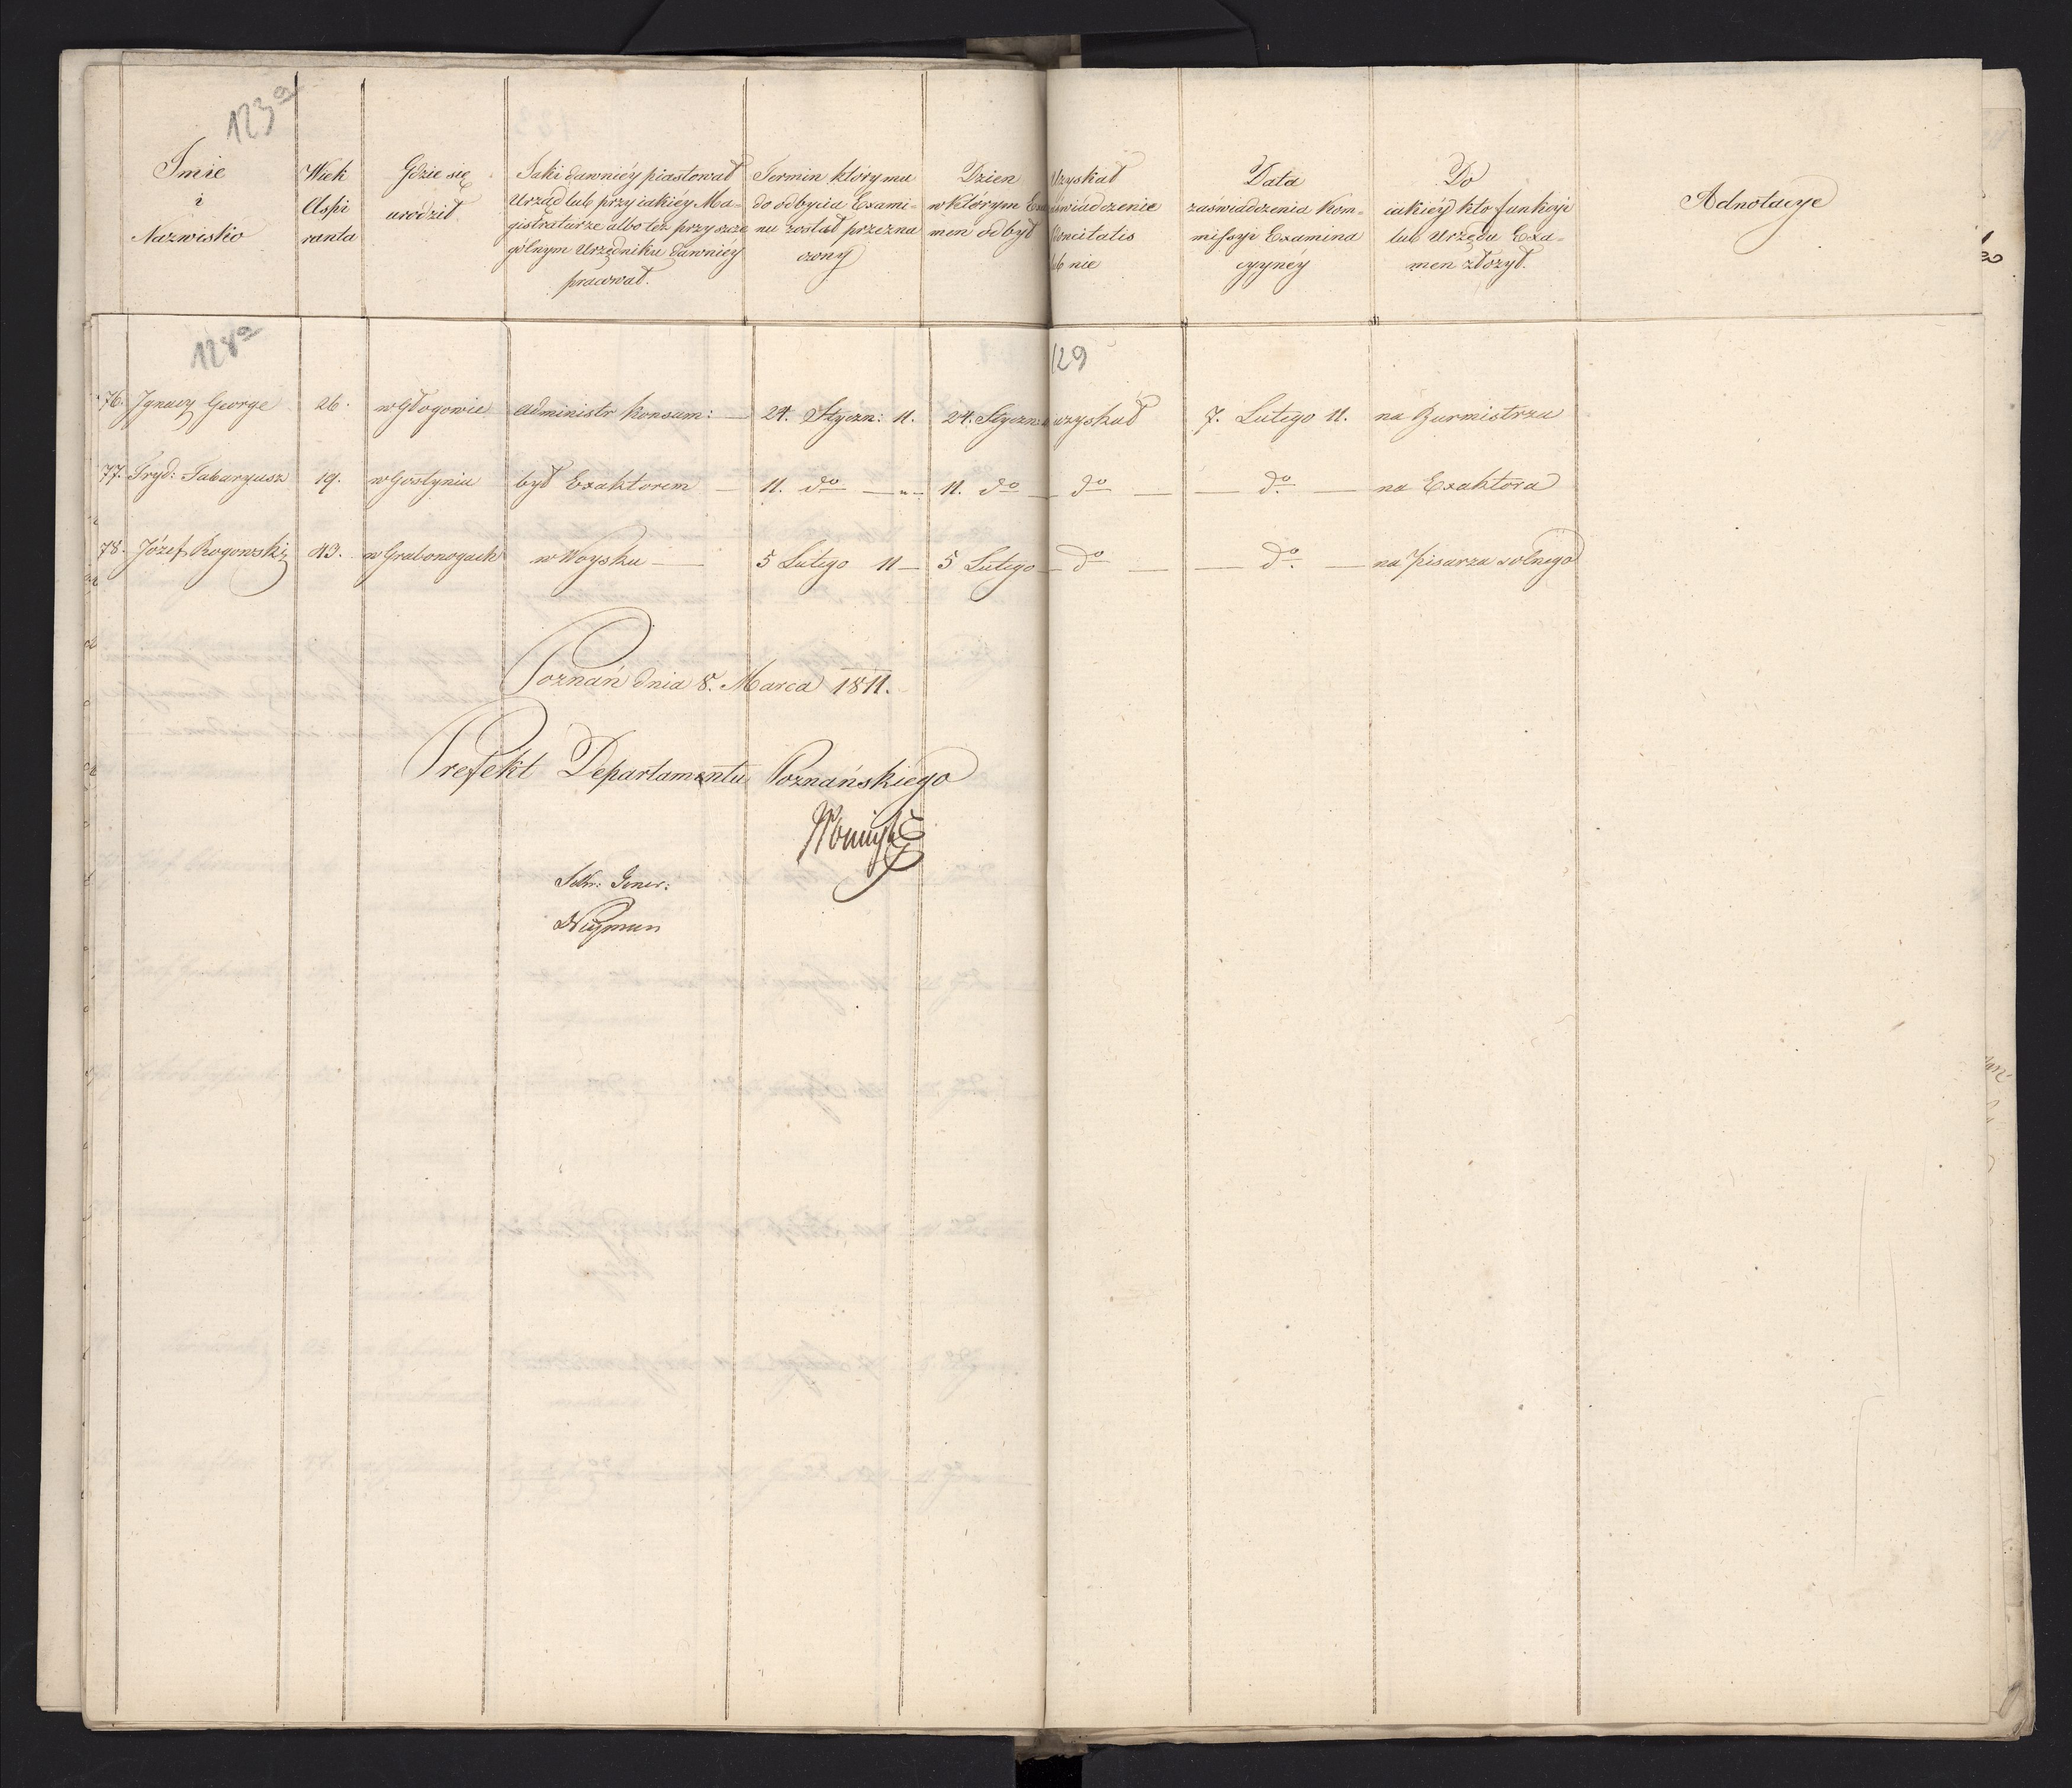 123a
Imie
i
Nazwisko
Wiek
Aspi
ranta
Gdzie się
urodził
Jaki dawniéy piastował
Urząd lub przy iakiéy Ma=
gistraturze albo też przy szcze
gólnym Urzędniku dawniéy
pracował.
Termin który mu
do odbycia Exami=
nu został przezna
czony
Dzien
w którym Exa
men odbył
Uzyskał
świadczenie
lub nie
Data
zaświadczenia Kom=
missyi Examina
cyynéy
Do
iakiéy kto funkcyi
lub Urzędu Exa=
men złożył.
Adnotacye
128a
129
76. Ignacy George 26. w Głogowie administr Konsum: — 24. Styczn: 11. 24. Styczn: uzyskał 7. Lutego 11. na Burmistrza
77. Fryd: Tabaryusz 19. w Gostyniu był Exaktorem — 11. do — " — 11. do — do — — do — na Exaktora
78. Józef Rogowski 43. w Grabonogach w Woysku — 5 Lutego 11 — 5 Lutego — do — — do — na Pisarza solnego
Poznań dnia 8. Marca 1811.
Prefekt Departamentu Poznańskiego
Sekr: Gener: